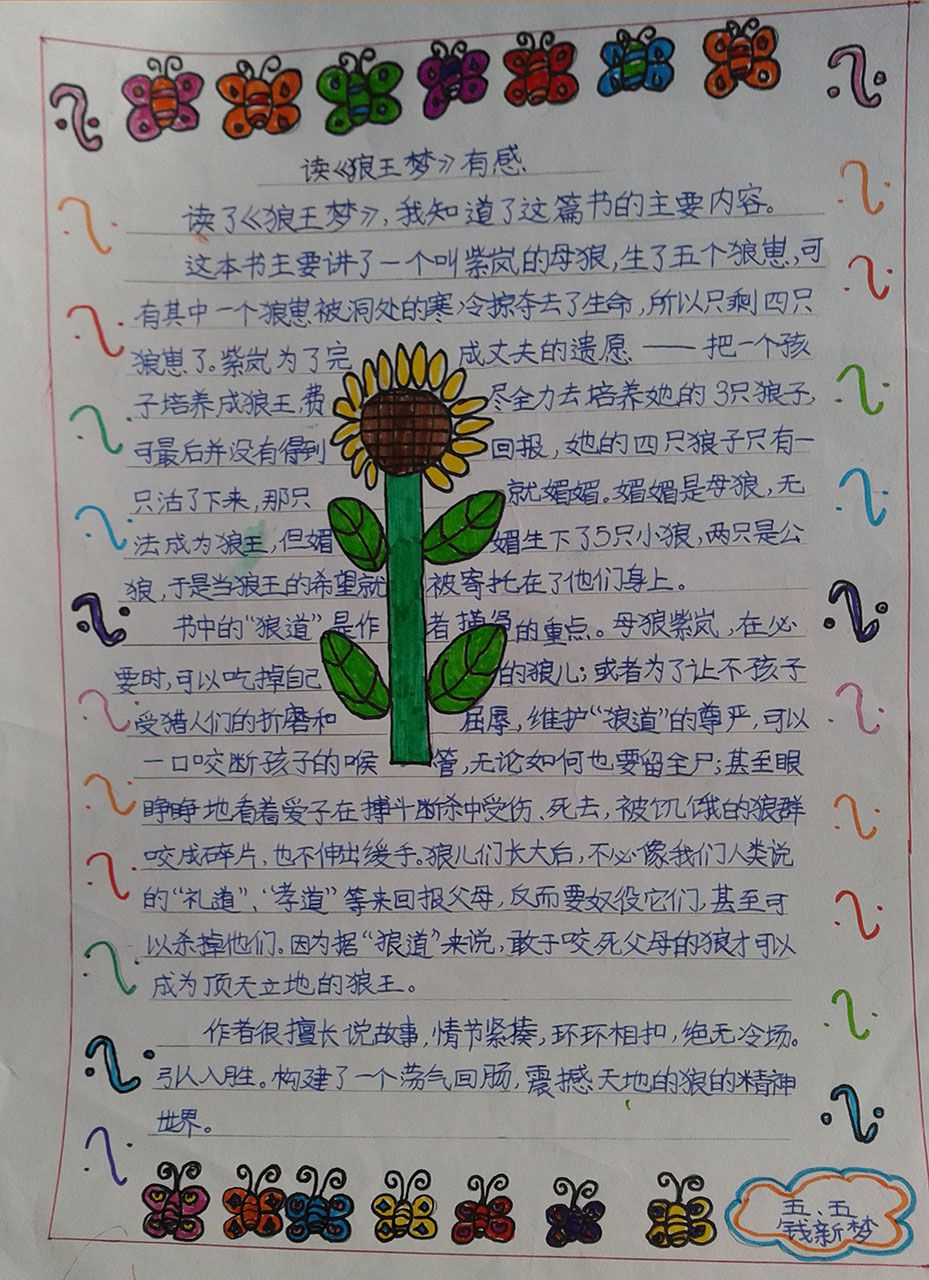 读《狼王梦》有感
读了《狼王梦》，我知道了这篇书的主要内容。
这本书主要讲了一个叫紫岚的母狼，生了五个狼崽，可
有其中一个狼崽被洞处的寒冷掠夺去了生命，所以只剩四只
狼崽了。紫岚为了完成丈夫的遗愿——把一个孩
子培养成狼王，费尽全力去培养她的3只狼子，
可最后并没有得到回报，她的四只狼子只有一
只活了下来，那只就媚媚。媚媚是母狼，无
法成为狼王，但媚媚生下了5只小狼，两只是公
狼，于是当狼王的希望就被寄托在了他们身上。
书中的“狼道”是作者的重点。母狼紫岚，在必
要时，可以吃掉自己的狼儿；或者为了让不孩子
受猎人们的折磨和屈辱，维护“狼道”的尊严，可以
一口咬断孩子的喉管，无论如何也要留全尸；甚至眼
睁睁地看着爱子在搏斗断杀中受伤、死去，被饥饿的狼群
咬成碎片，也不伸出缓手。狼儿们长大后，不必像我们人类说
的“礼道”、“孝道”等来回报父母，反而要奴役它们，甚至可
以杀掉他们。因为据“狼道”来说，敢于咬死父母的狼才可以
成为顶天立地的狼王。
作者很擅长说故事，情节紧揍，环环相扣，绝无冷场。
引人入胜。构建了一个荡气回肠，震撼天地的狼的精神
世界。
五、五
钱新梦